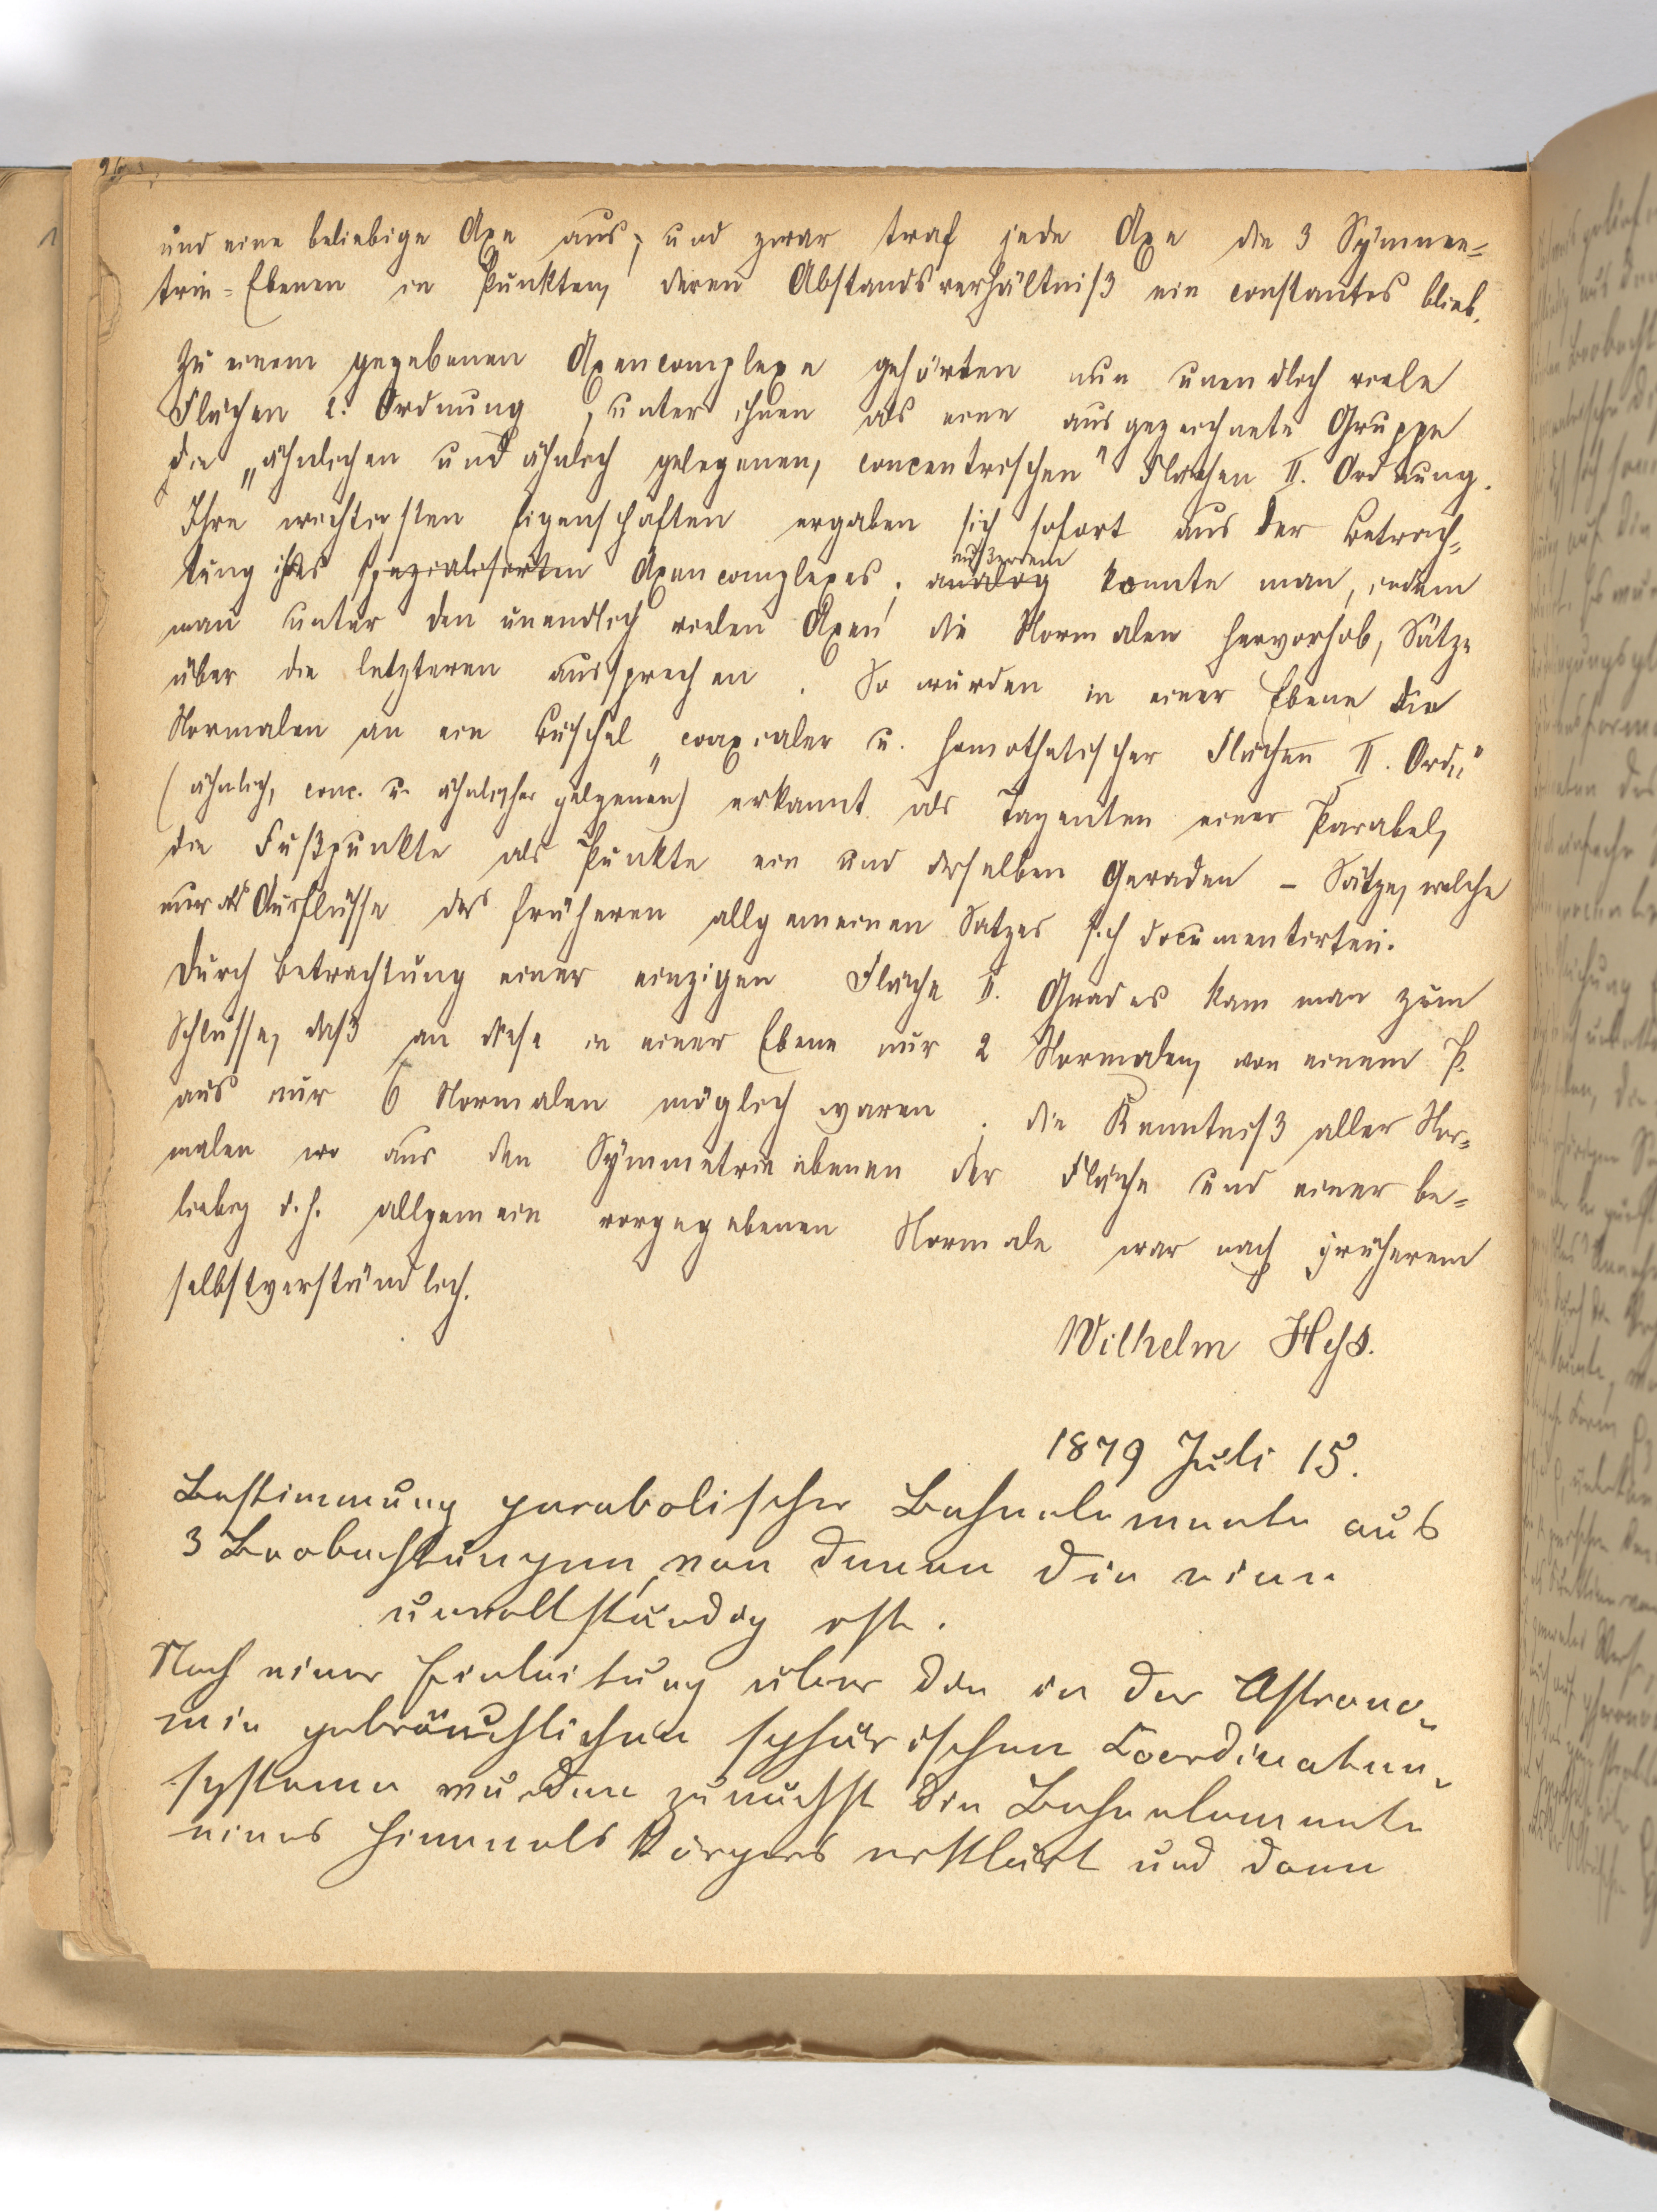 und eine beliebige Axe aus; und zwar traf jede Axe die 3 Symme=
trie=Ebenen in Punkten, deren Abstandsverhältniß ein constantes blieb.
Zu einem gegebenen Axencomplexe gehörten nun unendlich viele
Flächen 2. Ordnung, unter ihnen als eine ausgezeichnete Gruppe
die „ähnlichen und ähnlich gelegenen, concentrischen" Flächen II. Ordnung.
Ihre wichtigsten Eigenschaften ergaben sich sofort aus der Betrach=
tung ihres spezialisirten Axencomplexes; analog konnte man, indem
außerdem
man unter den unendlich vielen Axen die Normalen hervorhob, Sätze
über die letzteren aussprechen. So wurden in einer Ebene die
Normalen an ein Büschel „coaxialer u. homothetischer Flächen II. Ord."
(ähnlich, conc. u. ähnlicher gelegenen) erkannt als Tagenten einer Parabel,
die Fußpunkte als Punkte ein und derselben Geraden – Sätze, welche
nur als Ausflüsse des früheren allgemeinen Satzes sich documentirten.
Durch Betrachtung einer einzigen Fläche II. Grades kam man zum
Schlusse, daß an diese in einer Ebene nur 2 Normalen, von einem P.
aus nur 6 Normalen möglich waren; die Kenntniß aller Nor=
malen aus den Symmetrieebenen der Fläche und einer be=
liebig d.h. allgemein vorgegebenen Normale war nach früherem
selbstverständlich.
Wilhelm Heß.
1879 Juli 15.
Bestimmung parabolischer Bahnelemente aus
3 Beobachtungen, von denen die eine
unvollständig ist.
Nach einer Einleitung über die in der Astrono=
mie gebräuchlichen sphärischen Coordinaten=
systeme wurden zunächst die Bahnelemente
eines Himmelskörpers erklärt und dann